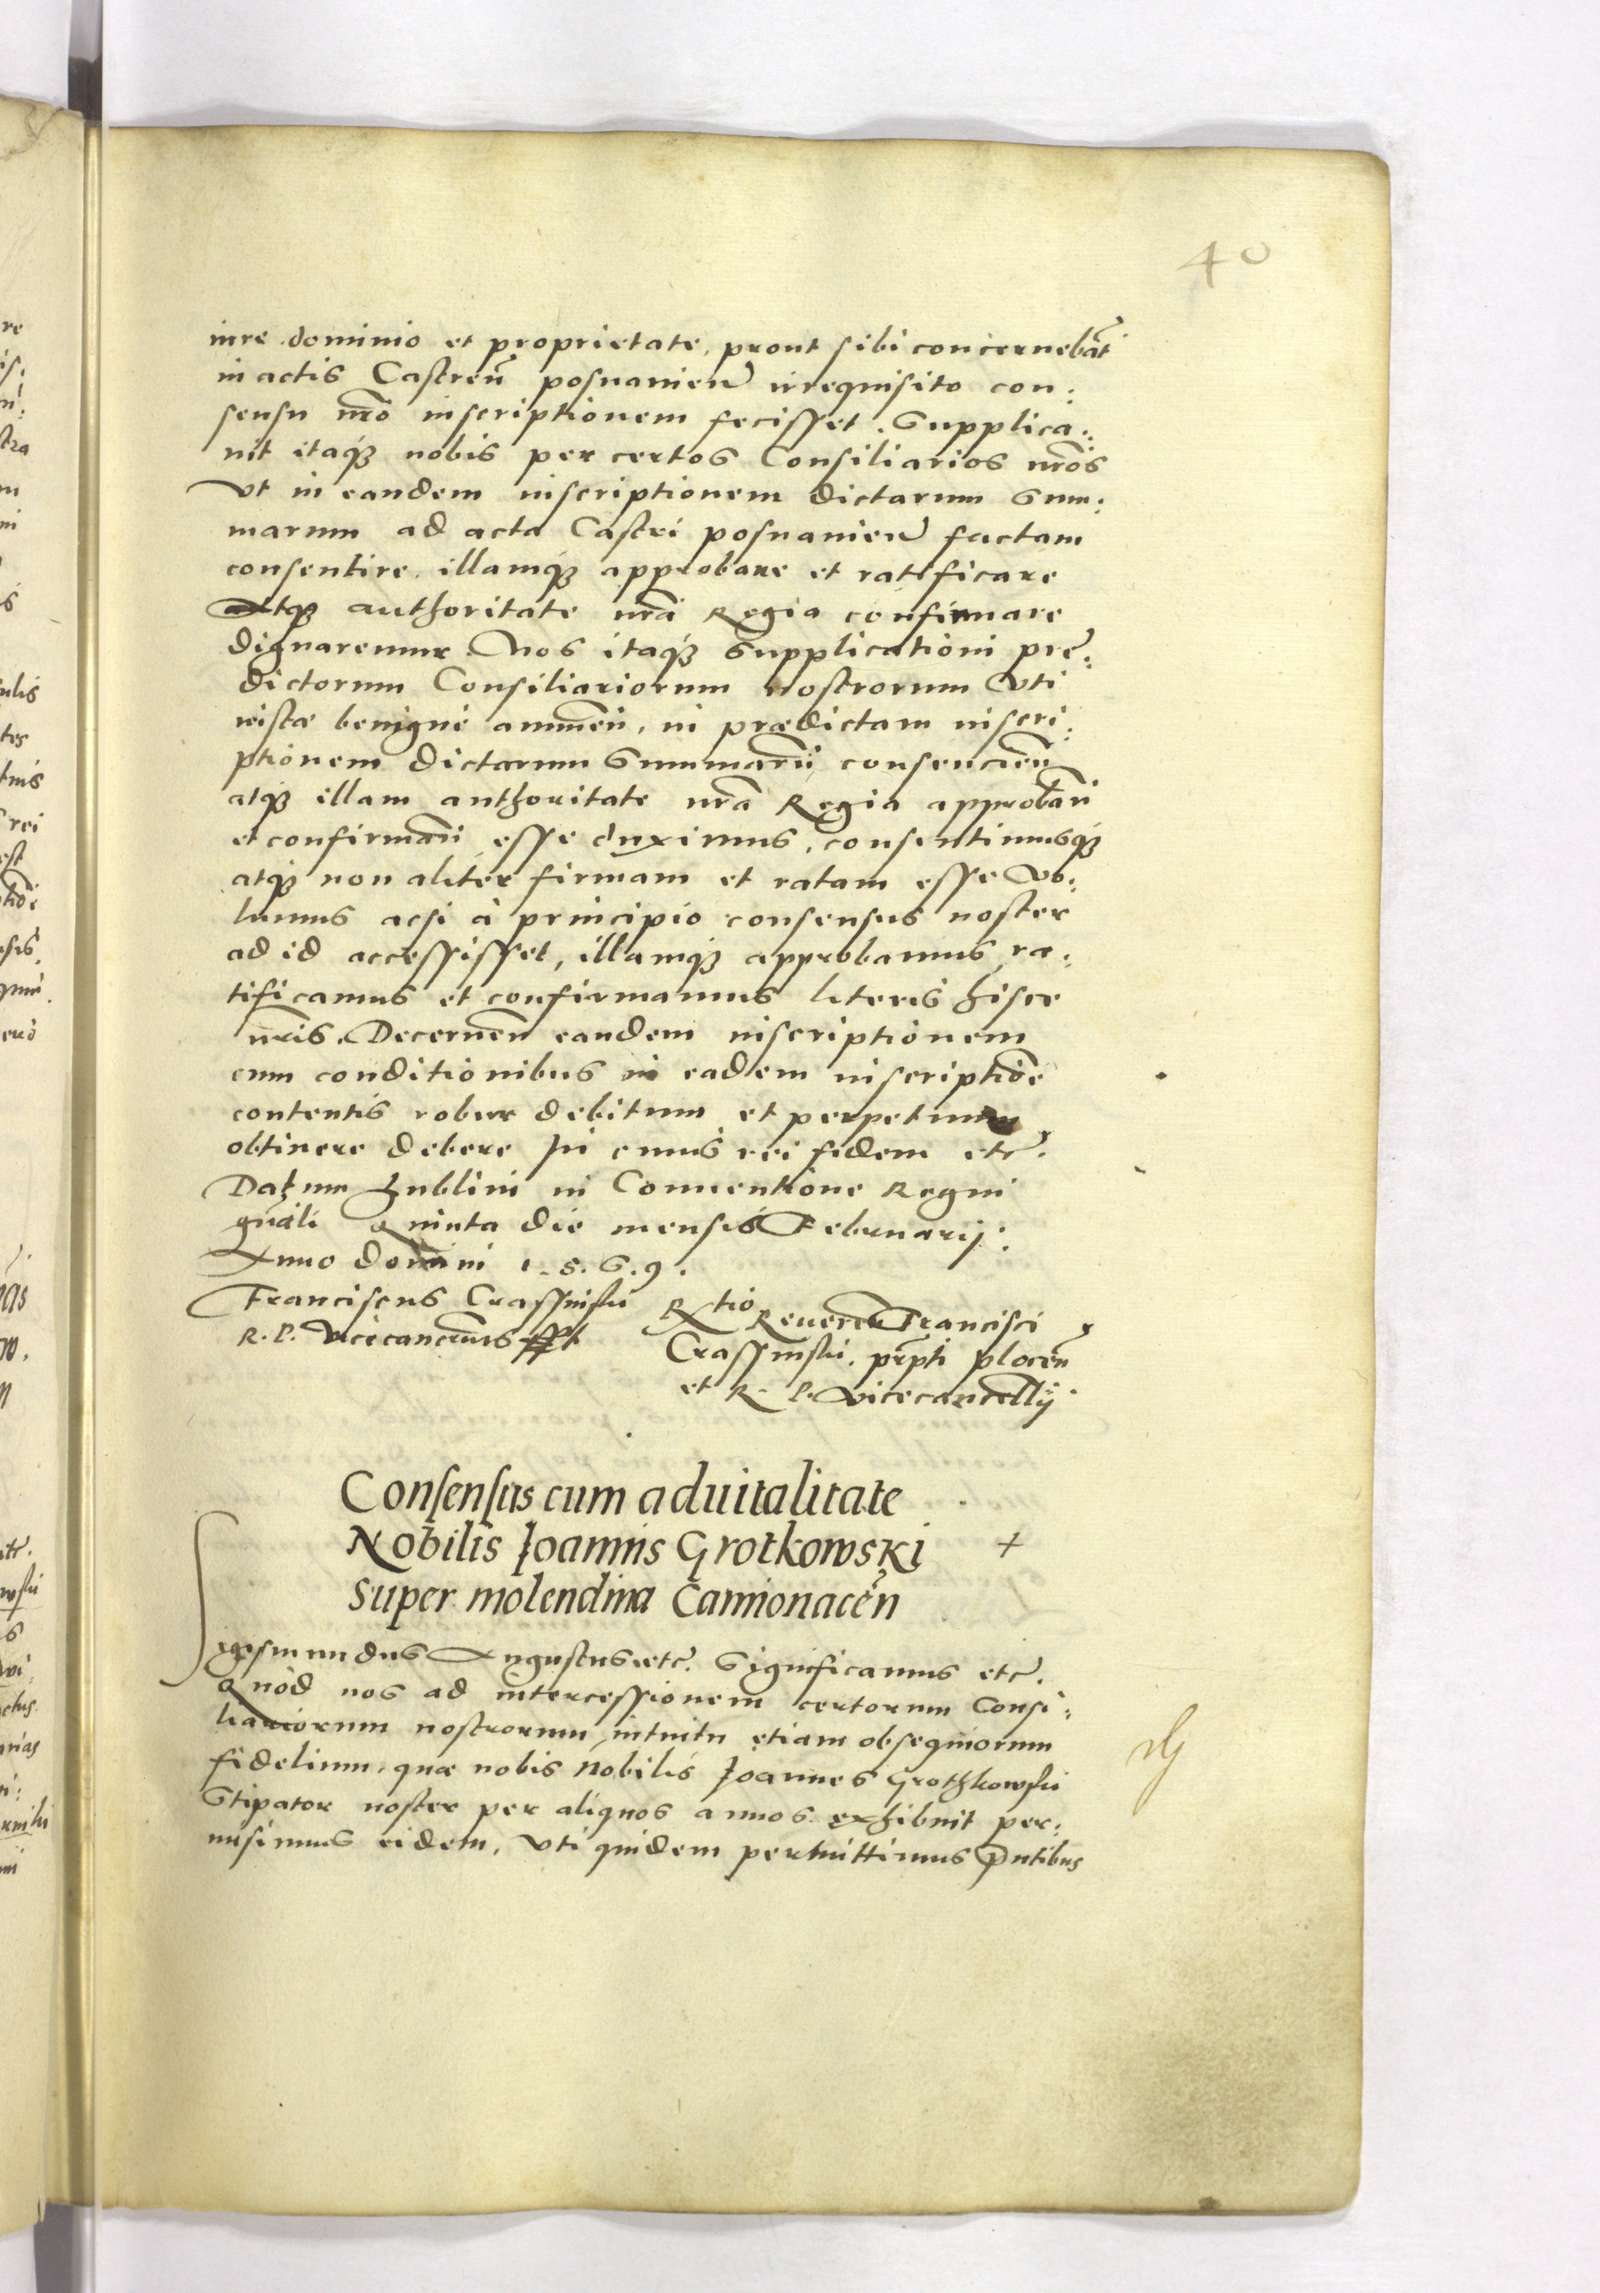 40
iure dominio et proprietate, prout sibi concernebāt
in actis Castreñ posnanieñ irrequisito con:
sensu nrō inscriptionem fecisset. Supplica:
uit itaqꝫ nobis per certos Consiliarios nrōs
Vt in eandem inscriptionem dictarum Sum:
marum ad acta Castri posnanieñ factam
consentire illamqꝫ approbare et ratificare
atqꝫ authoritate nrā Regia confirmare
dignaremur Nos itaqꝫ Supplicationi pre:
dictorum Consiliariorum nostrorum Vti
iustæ benigne annueñ, in prædictam inscri:
ptionem dictarum Summarū consencieñ
atqꝫ illam authoritate nrā Regia approbañ
et confirmañ esse duximus, consentimusqꝫ
atqꝫ non aliter firmam et ratam esse Vo:
lumus acsi à principio consensus noster
ad id accessisset, illamqꝫ approbamus ra:
tificamus et confirmamus literis hisce
nrīs. Decerneñ eandem inscriptionem
cum conditionibus in eadem inscriptiōe
contentis robur debitum et perpetuum
obtinere debere In cuius rei fidem etc̃.
Datum Lublini in Conuentione Regni
gñali Quinta die mensis Februarij:
Anno domini 1.5.6.9.
Franciscus Crassinski
R. P. Vicecancrius sst
Rtio Reuereñ Francisci
Crassinski, prp̄ti plocēn
et R. P. Vicecancellij
Consensus cum aduitalitate
Nobilis Joannis Grotkowski +
super molendina Camionacēn
Sigismundus Augustus etc̃. Significamus etc̃.
Quòd nos ad intercessionem certorum Consi:
liariorum nostrorum, intuitu etiam obsequiorum
fidelium, quæ nobis Nobilis Joannes Grothkowski
Stipator noster per aliquos annos exhibuit per:
misimus eidem, Vti quidem permittimus p̄ntibus